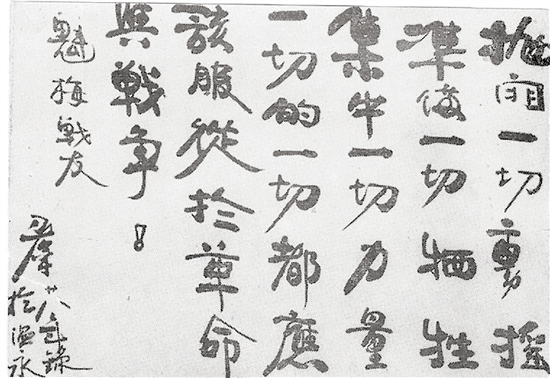 拋開一切動搖
準備一切牺牲
集中一切力量
一切的一切都應
該服從於革命
與戰争！
魁梅戰友
廿八年錄
於温永